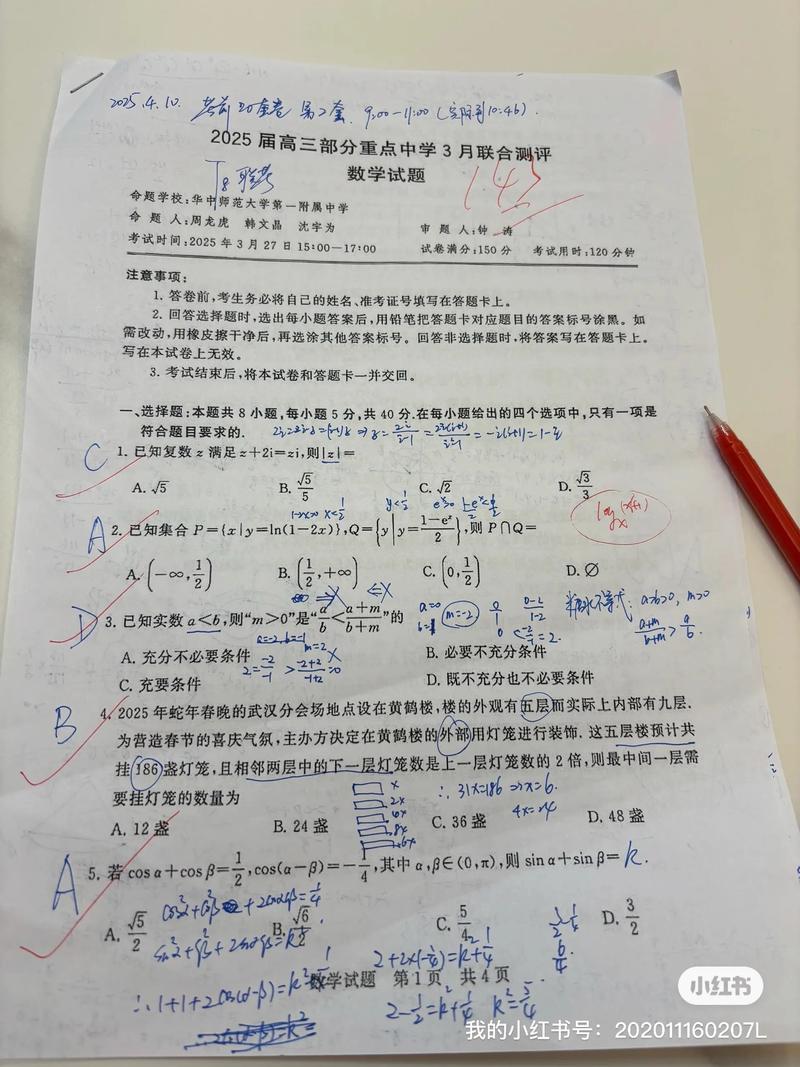 2025.4.10. 考前20套卷 第2套. 9:00-11:00 (实际到10:46).
2025届高三部分重点中学3月联合测评
T8联考
数学试题
143
命题学校:华中师范大学第一附属中学
命 题 人:周龙虎 韩文晶 沈宇为 审 题 人:钟 涛
考试时间:2025年3月27日 15:00—17:00 试卷满分:150分 考试用时:120分钟
注意事项:
1. 答卷前,考生务必将自己的姓名、准考证号填写在答题卡上。
2. 回答选择题时,选出每小题答案后,用铅笔把答题卡对应题目的答案标号涂黑。如
需改动,用橡皮擦干净后,再选涂其他答案标号。回答非选择题时,将答案写在答题卡上。
写在本试卷上无效。
3. 考试结束后,将本试卷和答题卡一并交回。
一、选择题:本题共8小题,每小题5分,共40分.在每小题给出的四个选项中,只有一项是
符合题目要求的.
C 1. 已知复数z满足z+2i=zi,则|z|=
A. √5 B. √5/5 C. √2 D. √3/3
1-2x>0 x<1/2 y<1/2
A 2. 已知集合P={x|y=ln(1-2x)},Q={y|y=(1-eˣ)/2},则P∩Q=
A. (-∞,1/2) B. (1/2,+∞) C. (0,1/2) D. ∅
D 3. 已知实数a<b,则“m>0”是“a/b<(a+m)/(b+m)”的
a=0 m=-2
糖水不等式: a>b>0, m>0
(a+m)/(b+m)>a/b
a=-2,b=-1 m=2
A. 充分不必要条件 B. 必要不充分条件
C. 充要条件 D. 既不充分也不必要条件
B 4. 2025年蛇年春晚的武汉分会场地点设在黄鹤楼,楼的外观有五层而实际上内部有九层.
为营造春节的喜庆气氛,主办方决定在黄鹤楼的外部用灯笼进行装饰. 这五层楼预计共
挂186盏灯笼,且相邻两层中的下一层灯笼数是上一层灯笼数的2倍,则最中间一层需
要挂灯笼的数量为
x 2x 4x 8x 16x
∴ 31x=186 ⇒x=6.
4x=24
A. 12盏 B. 24盏 C. 36盏 D. 48盏
A 5. 若cos α+cos β=1/2,cos(α-β)=-1/4,其中α,β∈(0,π),则sin α+sin β= k.
A. √5/2 B. √6/2 C. 5/4 D. 3/2
2+2×(-1/4)=k²+1/4
∴1+1+2cos(α-β)=k²+1/4
数学试题 第1页 共4页
2-1/2=k²+1/4 k²=5/4
小红书
我的小红书号: 202011160207L